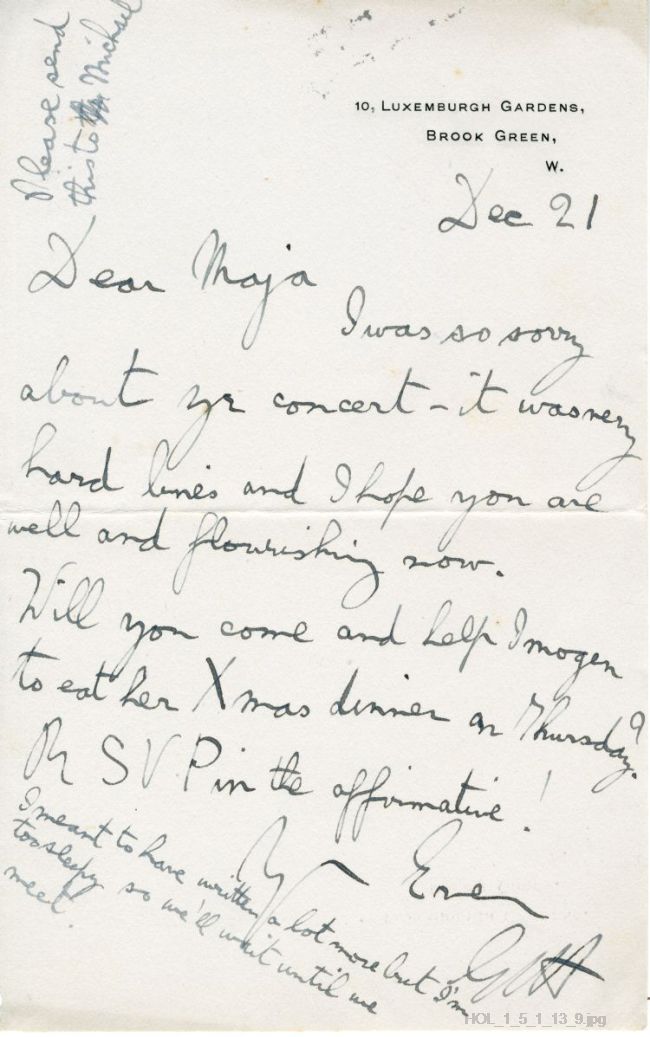 Please send
this to Michael
10, LUXEMBURGH GARDENS,
BROOK GREEN,
W.
Dec 21
Dear Maja
I was so sorry
about yr concert - it was very
hard lines and I hope you are
well and flourishing now.
Will you come and help Imogen
to eat her Xmas dinner on Thursday?
R S V P in the affirmative!
Yr Ever
GvH
I meant to have written a lot more but I'm
too sleepy so we'll wait until we
meet.
HOL_1_5_1_13_9.jpg